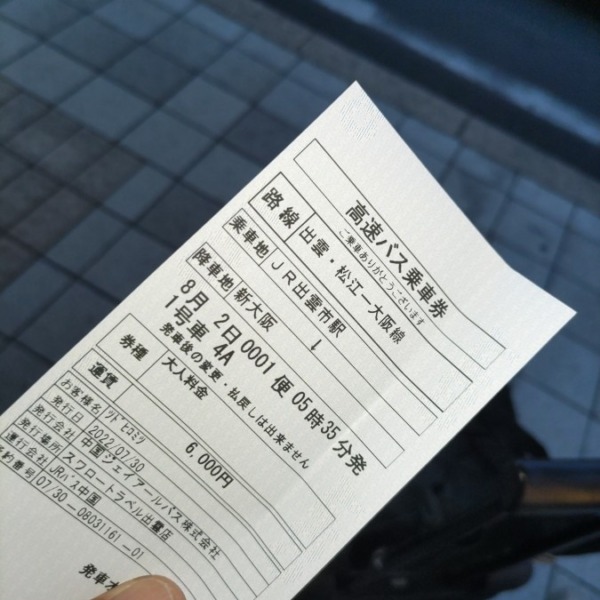 高速バス乗車券
ご乗車ありがとうございます
路線 出雲・松江ー大阪線
乗車地 JR出雲市駅
↓
降車地 新大阪
8月 2日 0001 便 05時35分発
1号車 4A
発券後の変更・払戻しは出来ません
券種 大人料金
運賃 6,000円
お客様名 ヒコミツ
発行日 2022/07/30
発行会社 中国ジェイアールバス株式会社
発行場所 スワロートラベル出雲店
運行会社 JRバス中国
約番号 07/30-08031161-01
発車